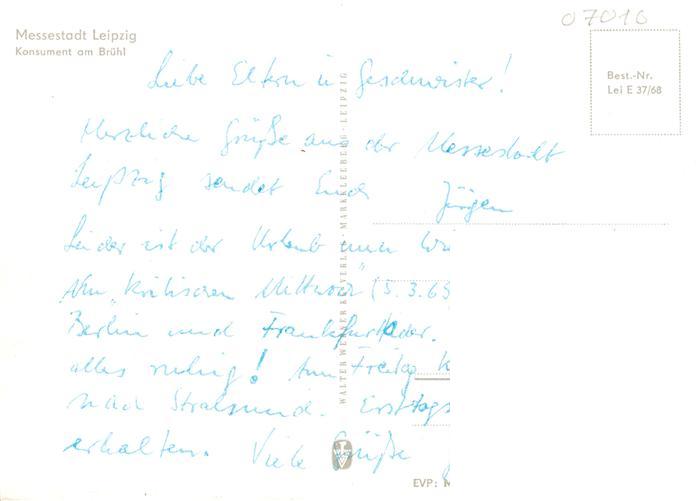 07010
Messestadt Leipzig
Konsument am Brühl
Best.-Nr.
Lei E 37/68
Liebe Eltern u Geschwister!
Herzliche Grüße aus der Messestadt
Leipzig sendet Euch Jürgen
Leider ist der Urlaub nun
Am "Kritischen Mittwoch" (5.3.69
Berlin und Frankfurt Oder.
alles ruhig! Am Freitag
nach Stralsund.
erhalten. Viele Grüße
WALTER WERNER KG VERLAG · MARKKLEEBERG · LEIPZIG
EVP: